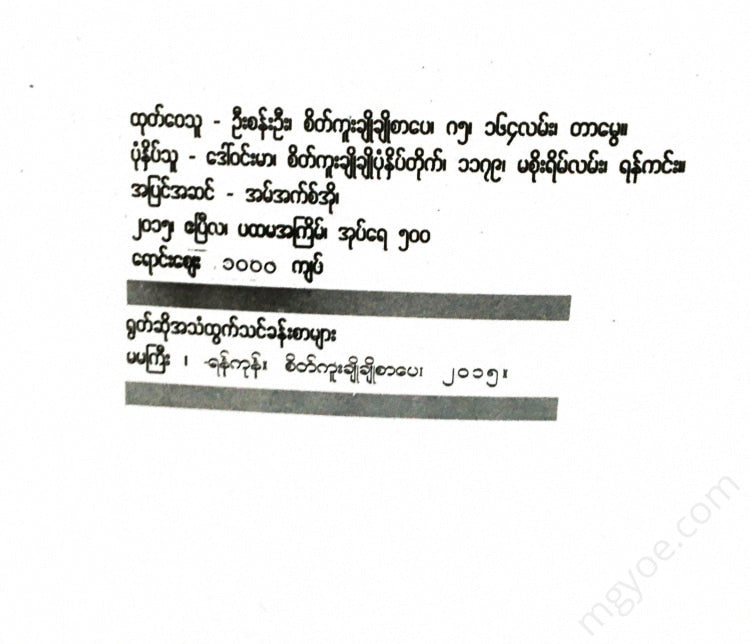 ထုတ်ဝေသူ - ဦးစန်းဦး၊ စိတ်ကူးချိုချိုစာပေ၊ ဂ၅၊ ၁၆၄လမ်း၊ တာမွေ။
ပုံနှိပ်သူ - ဒေါ်ဝင်းမာ၊ စိတ်ကူးချိုချိုပုံနှိပ်တိုက်၊ ၁၁၇၉၊ မစိုးရိမ်လမ်း၊ ရန်ကင်း။
အပြင်အဆင် - အမ်အက်စ်အို၊
၂၀၁၅၊ ဧပြီလ၊ ပထမအကြိမ်၊ အုပ်ရေ ၅၀၀
ရောင်းဈေး ၁၀၀၀ ကျပ်
ရွတ်ဆိုအသံထွက်သင်ခန်းစာများ
မမကြီး ၊ -ရန်ကုန်၊ စိတ်ကူးချိုချိုစာပေ၊ ၂၀၁၅။
mgyoe.com